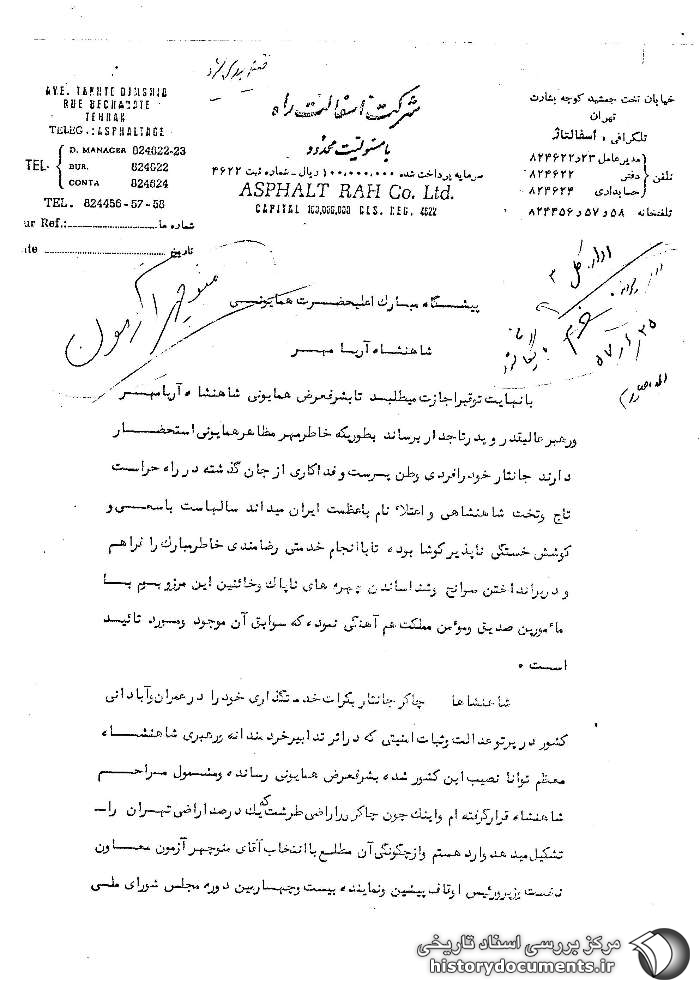 AVE. TAKHTE DJMSHID
RUE BECHARATE
TEHRAN
TELEG.:ASPHALTAGE
TEL- D. MANAGER 824622-23
BUR. 824622
CONTA 824624
TEL. 824456-57-58
ur Ref.:
شماره ما:
ate
تاریخ
شرکت اسفالت راه
با مسئولیت محدود
سرمایه پرداخت شده ۱۰۰,۰۰۰,۰۰۰ ریال ـ شماره ثبت ۴۶۲۲
ASPHALT RAH Co. Ltd.
CAPITAL 100,000,000 RLS. REG. 4622
خیابان تخت جمشید کوچه بشارت
تهران
تلگرافی : اسفالتاژ
تلفن مدیر عامل ۲۳و۸۲۴۶۲۲
دفتر ۸۲۴۶۲۲
حسابداری ۸۲۴۶۲۴
تلفنخانه ۵۸ و ۵۷ و ۸۲۴۴۵۶
منوچهر آزمون
اداره کل ۳
پیشگاه مبارک اعلیحضرت همایونی
شاهنشاه آریا مهر
با نهایت توقیر اجازت میطلبد تا بشرفعرض همایونی شاهنشاه آریامهر
و رهبر عالیقدر و پدر تاجدار برساند بطوریکه خاطر مهر مظاهر همایونی استحضار
دارند جانثار خود را فردی وطن پرست و فداکاری از جان گذشته در راه حراست
تاج و تخت شاهنشاهی و اعتلاء نام باعظمت ایران میداند سالهاست با سعی و
کوشش خستگی ناپذیر کوشا بوده تا با انجام خدمتی رضامندی خاطر مبارک را فراهم
و در برانداختن موانع و شناساندن چهره های ناپاک و خائنین این مرزو بوم با
مأمورین صدیق و مؤمن مملکت هم آهنگی نموده که سوابق آن موجود و مورد تائید
است .
شاهنشاها چاکر جانثار بکرات خدمتگذاری خود را در عمران و آبادانی
کشور در پرتو عدالت و ثبات امنیتی که در اثر تدابیر خردمندانه و رهبری شاهنشاه
معظم توانا نصیب این کشور شده بشرفعرض همایونی رسانده و مشمول مراحم
شاهنشاه قرار گرفته ام و اینک چون چاکر در اراضی طرشت که یک درصد اراضی تهران را
تشکیل میدهد وارد هستم و از چگونگی آن مطلع با انتخاب آقای منوچهر آزمون معاون
نخست وزیر و رئیس اوقاف پیشین و نماینده بیست و چهارمین دوره مجلس شورای ملی
مرکز بررسی اسناد تاریخی
historydocuments.ir